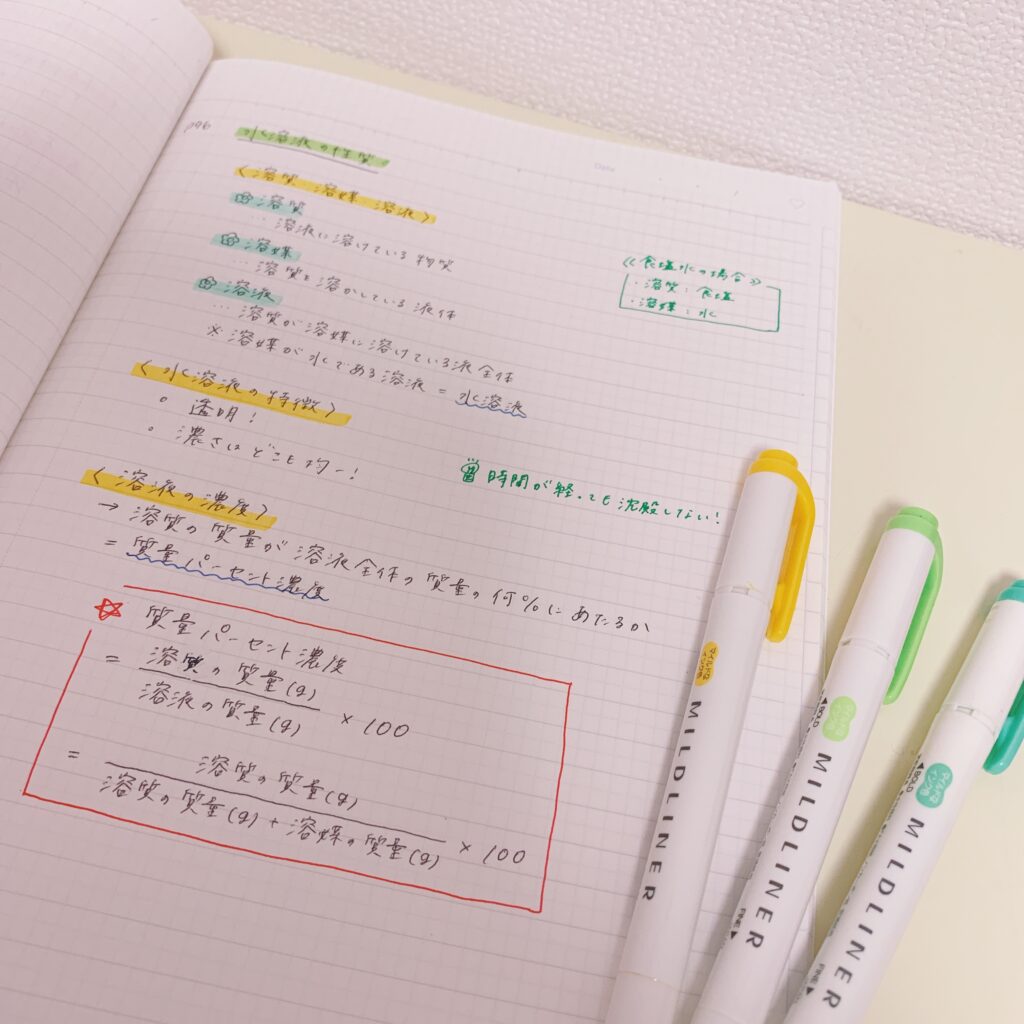 p96
水溶液の性質
Date
〈溶質 溶媒 溶液〉
溶質
… 溶液に溶けている物質
溶媒
… 溶質を溶かしている液体
溶液
… 溶質が溶媒に溶けている液全体
※ 溶媒が水である溶液 = 水溶液
《食塩水の場合》
・溶質：食塩
・溶媒：水
〈水溶液の特徴〉
° 透明！
° 濃さはどこも均一！
時間が経っても沈殿しない！
〈溶液の濃度〉
→ 溶質の質量が溶液全体の質量の何%にあたるか
= 質量パーセント濃度
☆ 質量パーセント濃度
= 溶質の質量(g)
溶液の質量(g) × 100
= 溶質の質量(g)
溶質の質量(g) + 溶媒の質量(g) × 100
マイルドな
インク色
MILDLINER
◀BOLD
マイルドな
インク色
MILDLINER
FINE▶
◀BOLD
マイルドな
インク色
MILDLINER
FINE▶